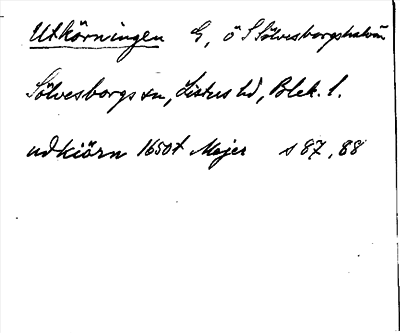 Utkörningen G, ö S Sölvesborgshalvön
Sölvesborgs sn, Listers hd, Blek. l.
udkiörn 1650t Mejer s 87, 88